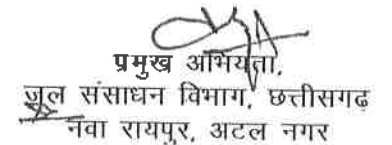 प्रमुख अभियंता,
जल संसाधन विभाग, छत्तीसगढ़
नवा रायपुर, अटल नगर